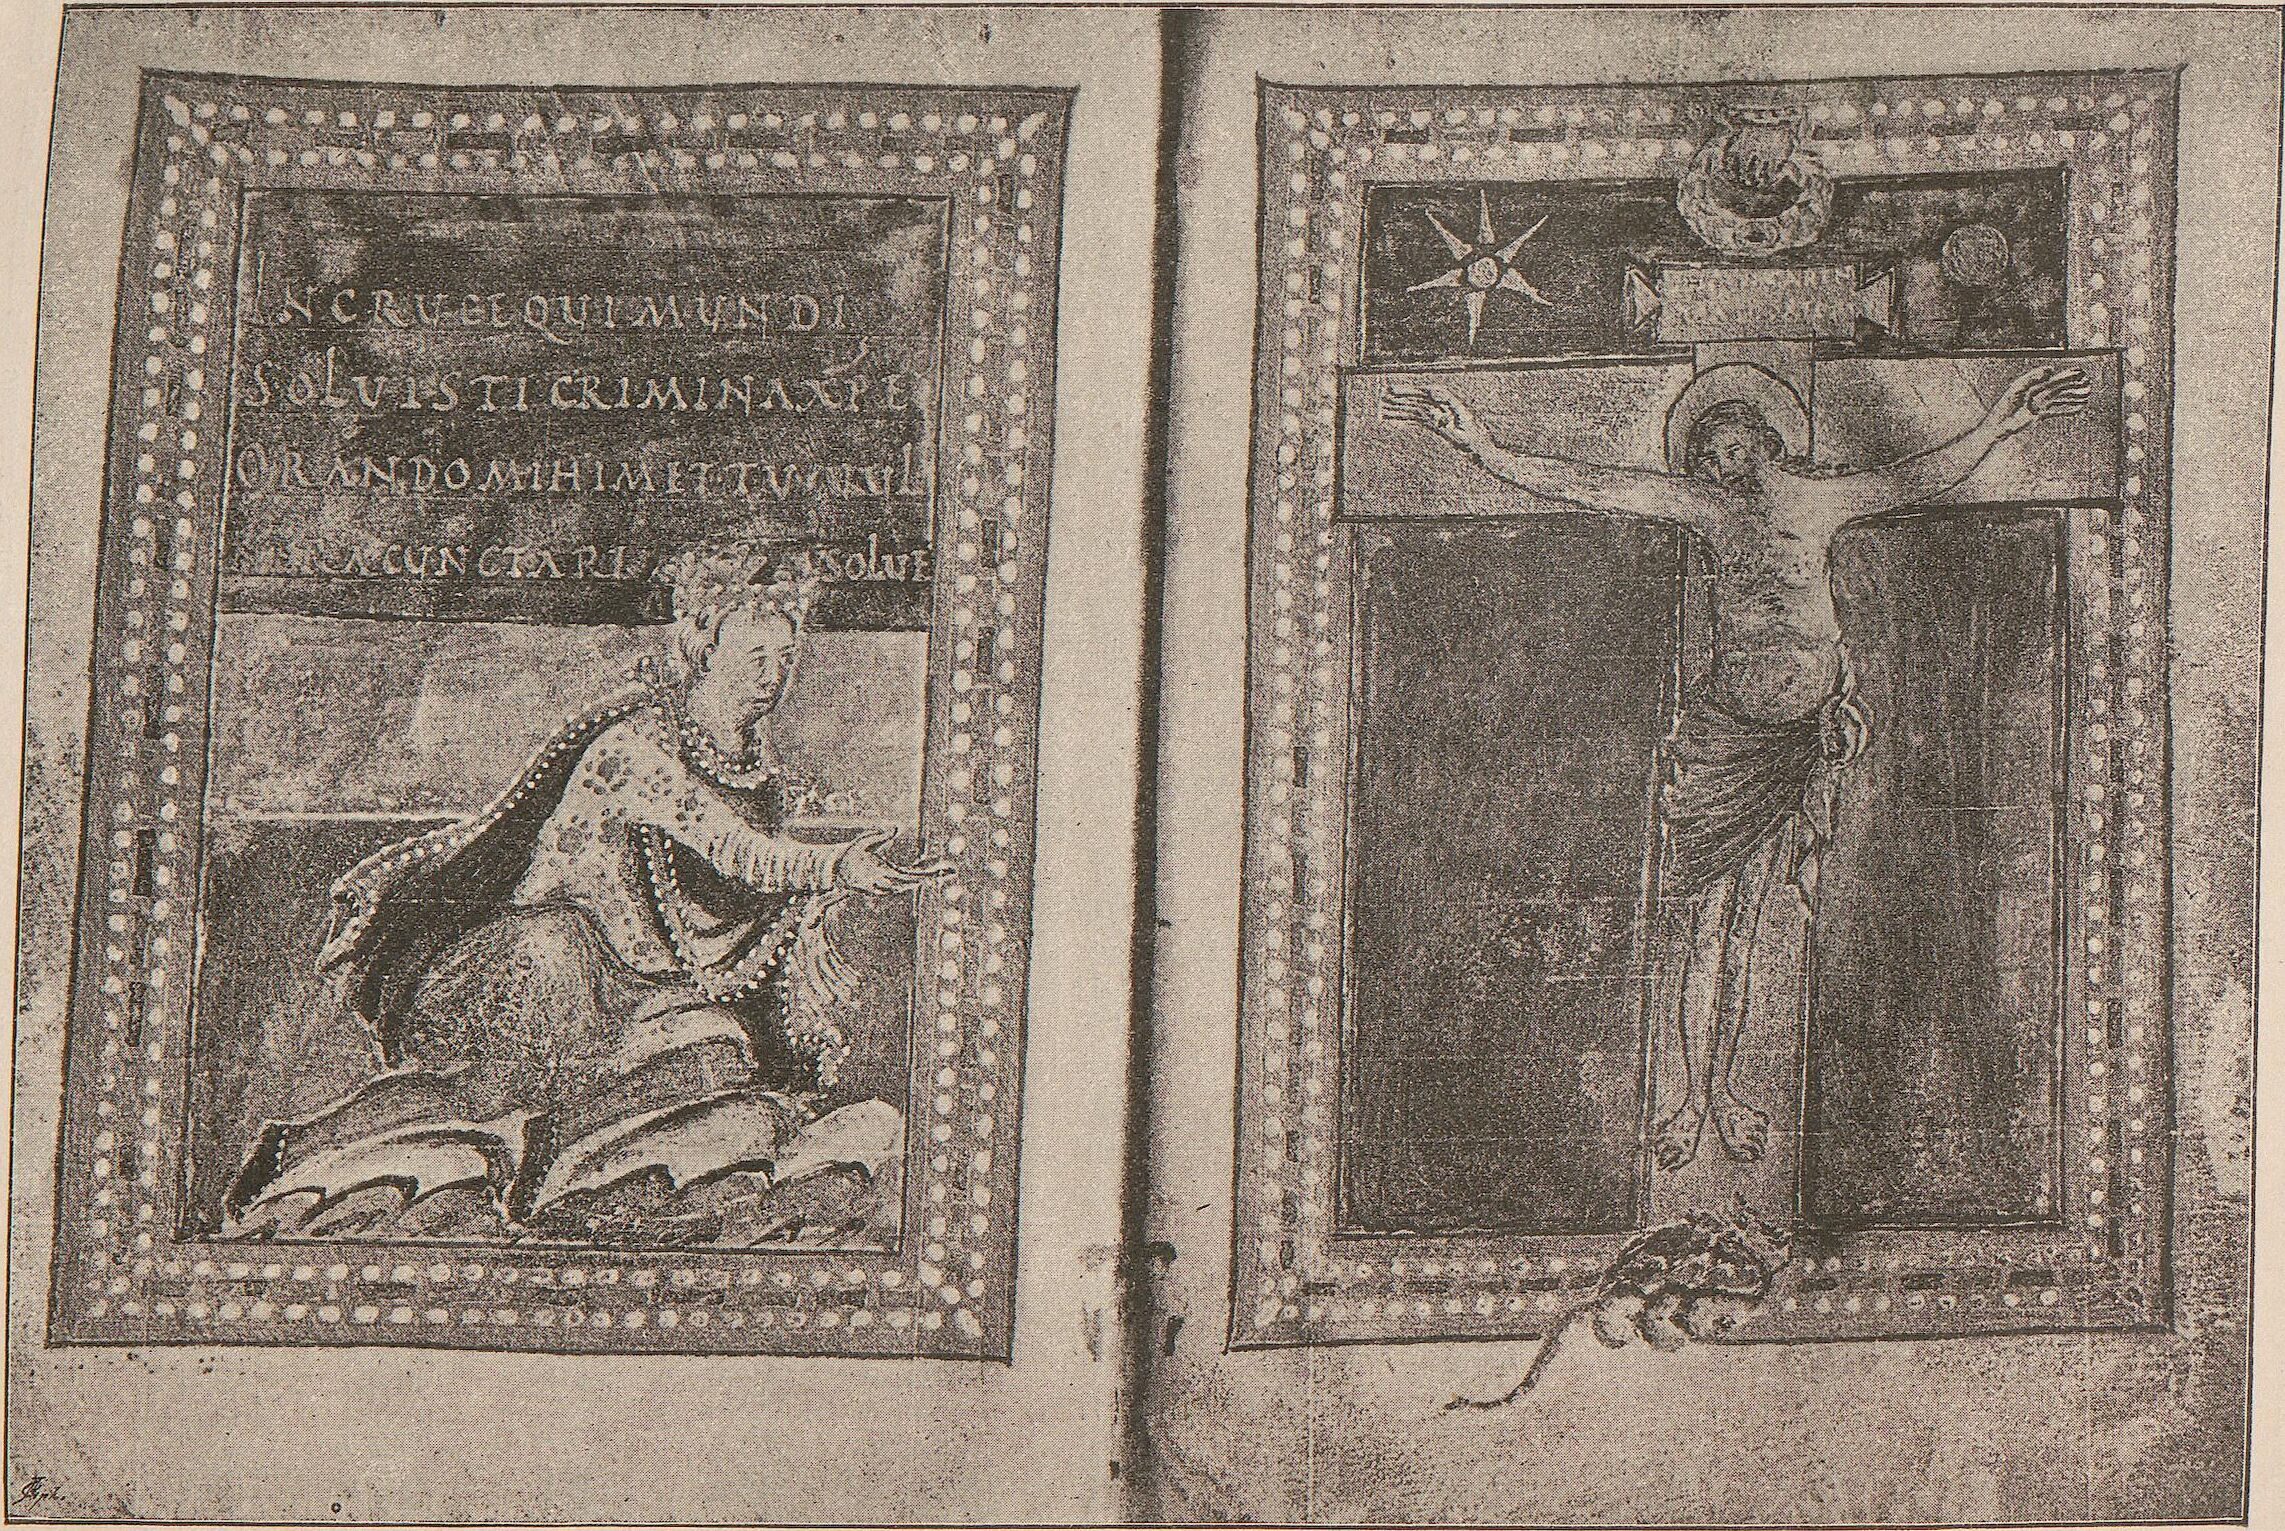 IN CRUCE QUI MUNDI
SOLUISTI CRIMINA XPE
ORANDO MIHIMET TU UUL
CUNCTA RE SOLUE